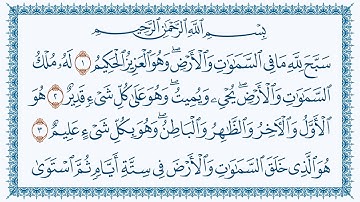 بِسْمِ ٱللَّهِ ٱلرَّحْمَٰنِ ٱلرَّحِيمِ
سَبَّحَ لِلَّهِ مَا فِى ٱلسَّمَٰوَٰتِ وَٱلْأَرْضِ ۖ وَهُوَ ٱلْعَزِيزُ ٱلْحَكِيمُ ١ لَهُۥ مُلْكُ
ٱلسَّمَٰوَٰتِ وَٱلْأَرْضِ ۖ يُحْىِۦ وَيُمِيتُ ۖ وَهُوَ عَلَىٰ كُلِّ شَىْءٍ قَدِيرٌ ٢ هُوَ
ٱلْأَوَّلُ وَٱلْءَاخِرُ وَٱلظَّٰهِرُ وَٱلْبَاطِنُ ۖ وَهُوَ بِكُلِّ شَىْءٍ عَلِيمٌ ٣
هُوَ ٱلَّذِى خَلَقَ ٱلسَّمَٰوَٰتِ وَٱلْأَرْضَ فِى سِتَّةِ أَيَّامٍ ثُمَّ ٱسْتَوَىٰ